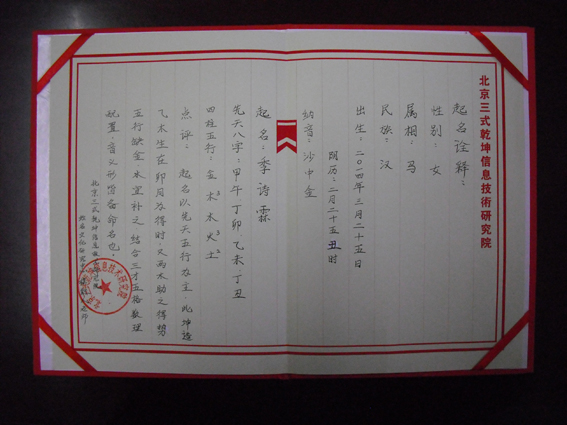 北京三式乾坤信息技術研究院
起名诠释：
性别：女
属相：马
民族：汉
出生：二〇一四年三月二十五日
阴历：二月二十五丑时
纳音：沙中金
起名：季诗霖
先天八字：甲午 丁卯 乙未 丁丑
四柱五行：金 木³ 水 火³ 土²
点评：起名以先天五行为主，此坤造
乙木生在卯月为得时，又两木助之得势
五行缺金水宜补之，结合三才五格数理
配置，音义形皆备命名也。